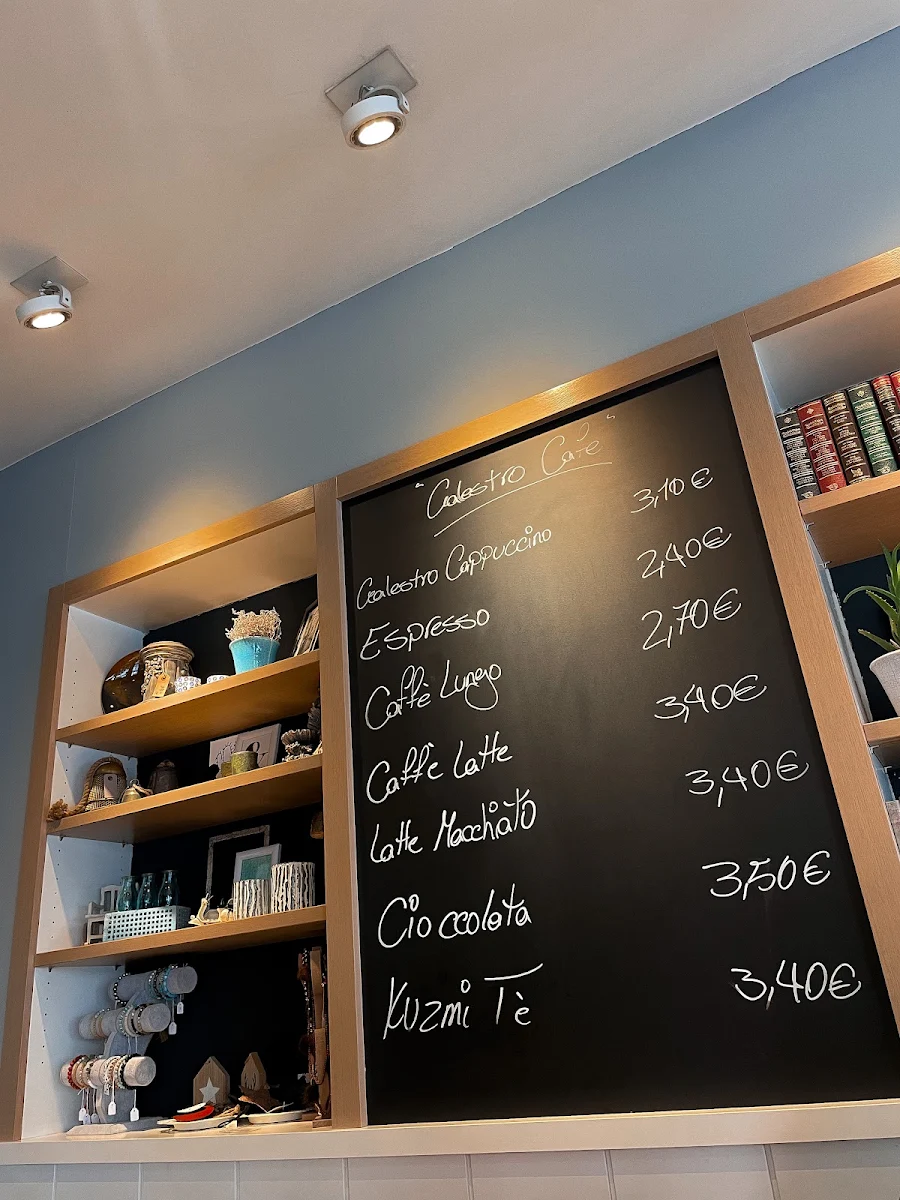 "Galestro Cafè"
Galestro Cappuccino 3,10€
Espresso 2,40€
Caffè Lungo 2,70€
Caffè Latte 3,40€
Latte Macchiato 3,40€
Cioccolata 3,50€
Kuzmi Tè 3,40€